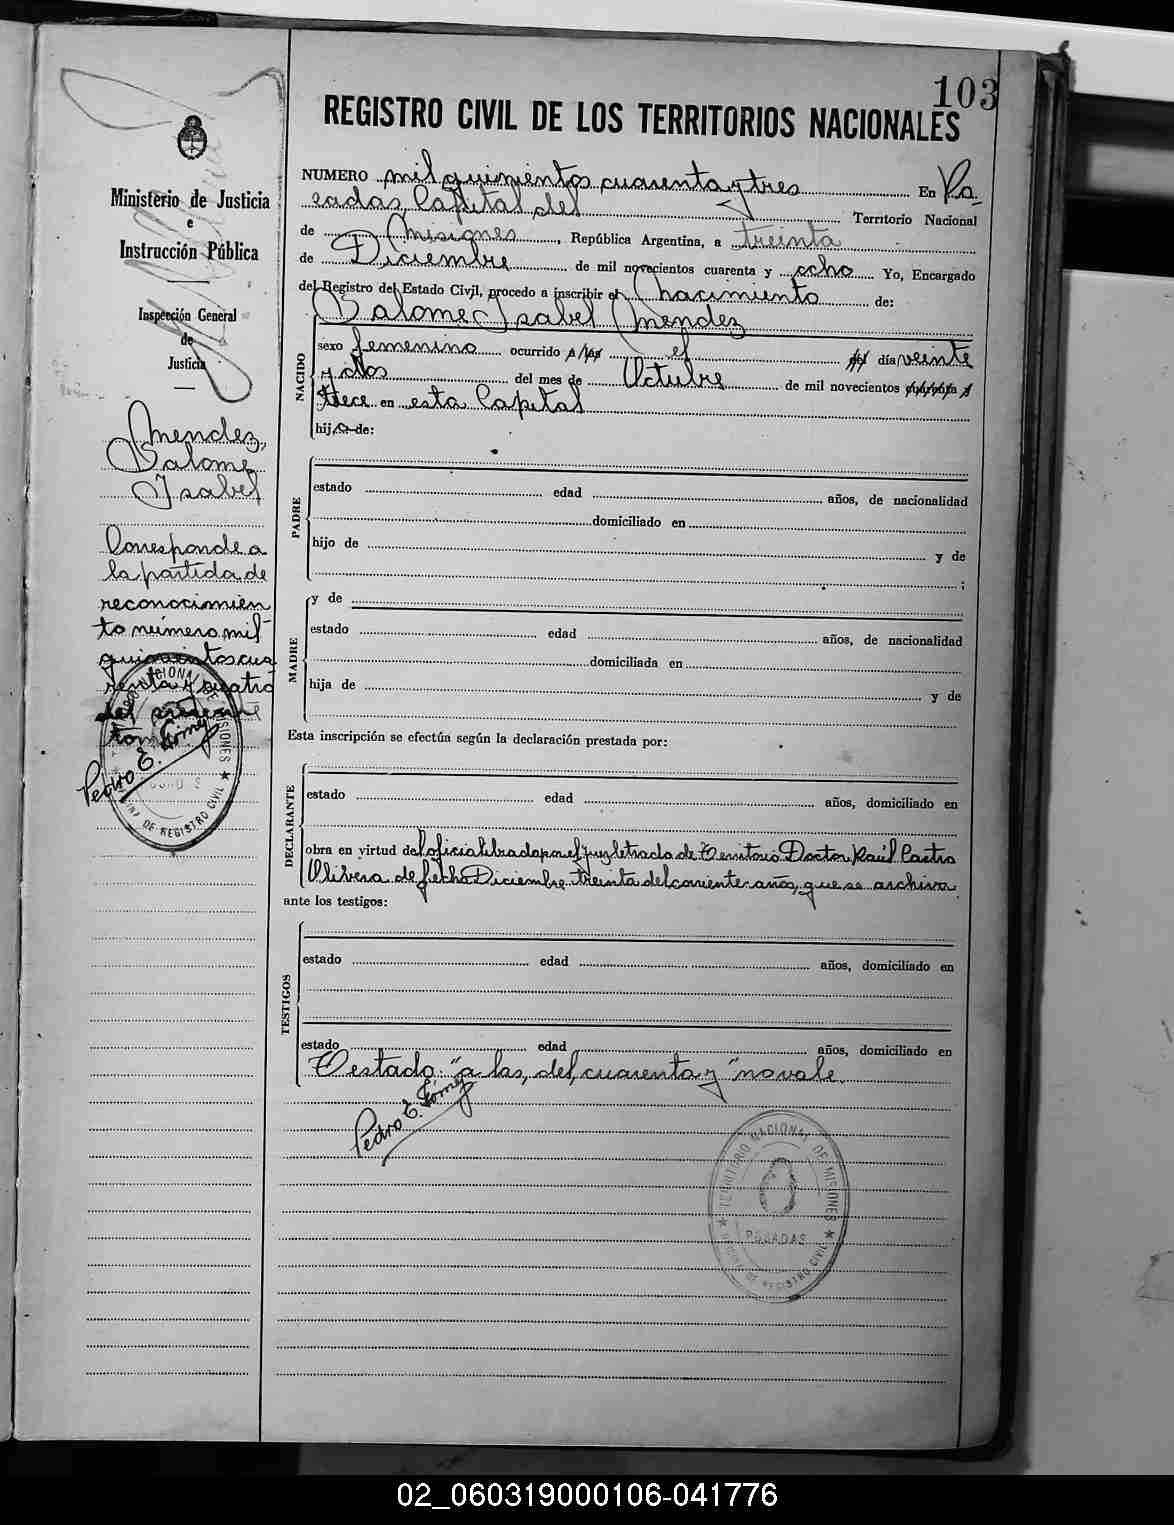 103
REGISTRO CIVIL DE LOS TERRITORIOS NACIONALES
Ministerio de Justicia
e
Instrucción Pública
Inspección General
de
Justicia
Mendez,
Salome
Isabel
Corresponde a
la partida de
reconocimien
to número mil
quinientos cua
renta y cuatro
del presente
tomo
Pedro E. Gómez
NUMERO mil quinientos cuarenta y tres En Po
sadas, Capital del Territorio Nacional
de Misiones, República Argentina, a treinta
de Diciembre de mil novecientos cuarenta y ocho Yo, Encargado
del Registro del Estado Civil, procedo a inscribir el Nacimiento de:
Salome Isabel Mendez
NACIDO
sexo femenino ocurrido a las el del día veinte
y dos del mes de Octubre de mil novecientos cuarenta y
trece en esta Capital
hija de:
PADRE
estado edad años, de nacionalidad
domiciliado en
hijo de y de
;
MADRE
y de
estado edad años, de nacionalidad
domiciliada en
hija de y de
Esta inscripción se efectún según la declaración prestada por:
DECLARANTE
estado edad años, domiciliado en
obra en virtud del oficio librado por el juez letrado de Territorio Doctor Raúl Castro
Olivera de fecha Diciembre treinta del corriente año, que se archiva
ante los testigos:
TESTIGOS
estado edad años, domiciliado en
estado edad años, domiciliado en
Testado: "a las, del, cuarenta y" no vale.
Pedro E. Gómez
TERRITORIO NACIONAL DE MISIONES
POSADAS
OFICINA DE REGISTRO CIVIL
02_060319000106-041776